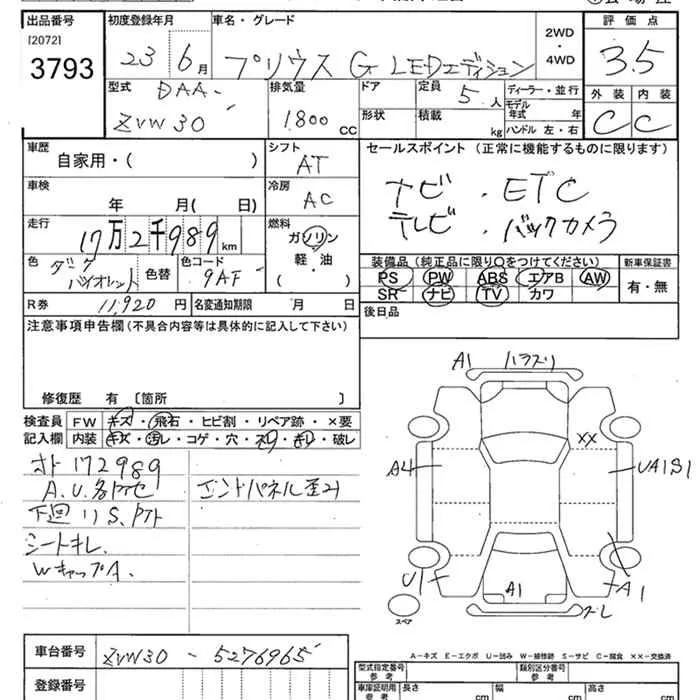 出品番号
[2072]
3793
初度登録年月
23 6月
車名・グレード
プリウス G LEDエディション
2WD
・
4WD
評価点
3.5
型式
DAA-
ZVW30
排気量
1800 CC
ドア
定員
5人
ディーラー・並行
形状
積載
kg
モデル年式 年
ハンドル 左・右
外装 内装
C C
車歴
自家用・( )
シフト
AT
車検
年 月( 日)
冷房
AC
走行
17万2千989km
燃料
ガソリン
軽・油
( )
色
ダークバイオレット
色替
色コード
9AF
R券
11,920円
名変通知期限 月 日
セールスポイント (正常に機能するものに限ります)
ナビ・ETC
テレビ・バックカメラ
装備品(純正品に限り○をつけてください)
PS PW ABS エアB AW
SR ナビ TV カワ
新車保証書
有・無
後日品
注意事項申告欄(不具合内容等は具体的に記入して下さい)
修復歴 有 〔箇所 〕
検査員記入欄
FW キズ・飛石・ヒビ割・リペア跡・×要
内装 キズ・汚レ・コゲ・穴・スレ・キレ・破レ
メーター 172989
A.U.各所
下廻りS.
シートキレ
WキャップA.
エンドパネル歪み
A1
ハラスリ
XX
A4
UA1S1
U1
A1
A1
スペア
A-キズ E-エクボ U-凹み W-補修跡 S-サビ C-腐食 XX-交換済
車台番号
ZVW30-5276965
登録番号
型式指定番号
参考
類別区分番号
参考
車庫証明用
参考
長さ cm
幅 cm
高さ cm